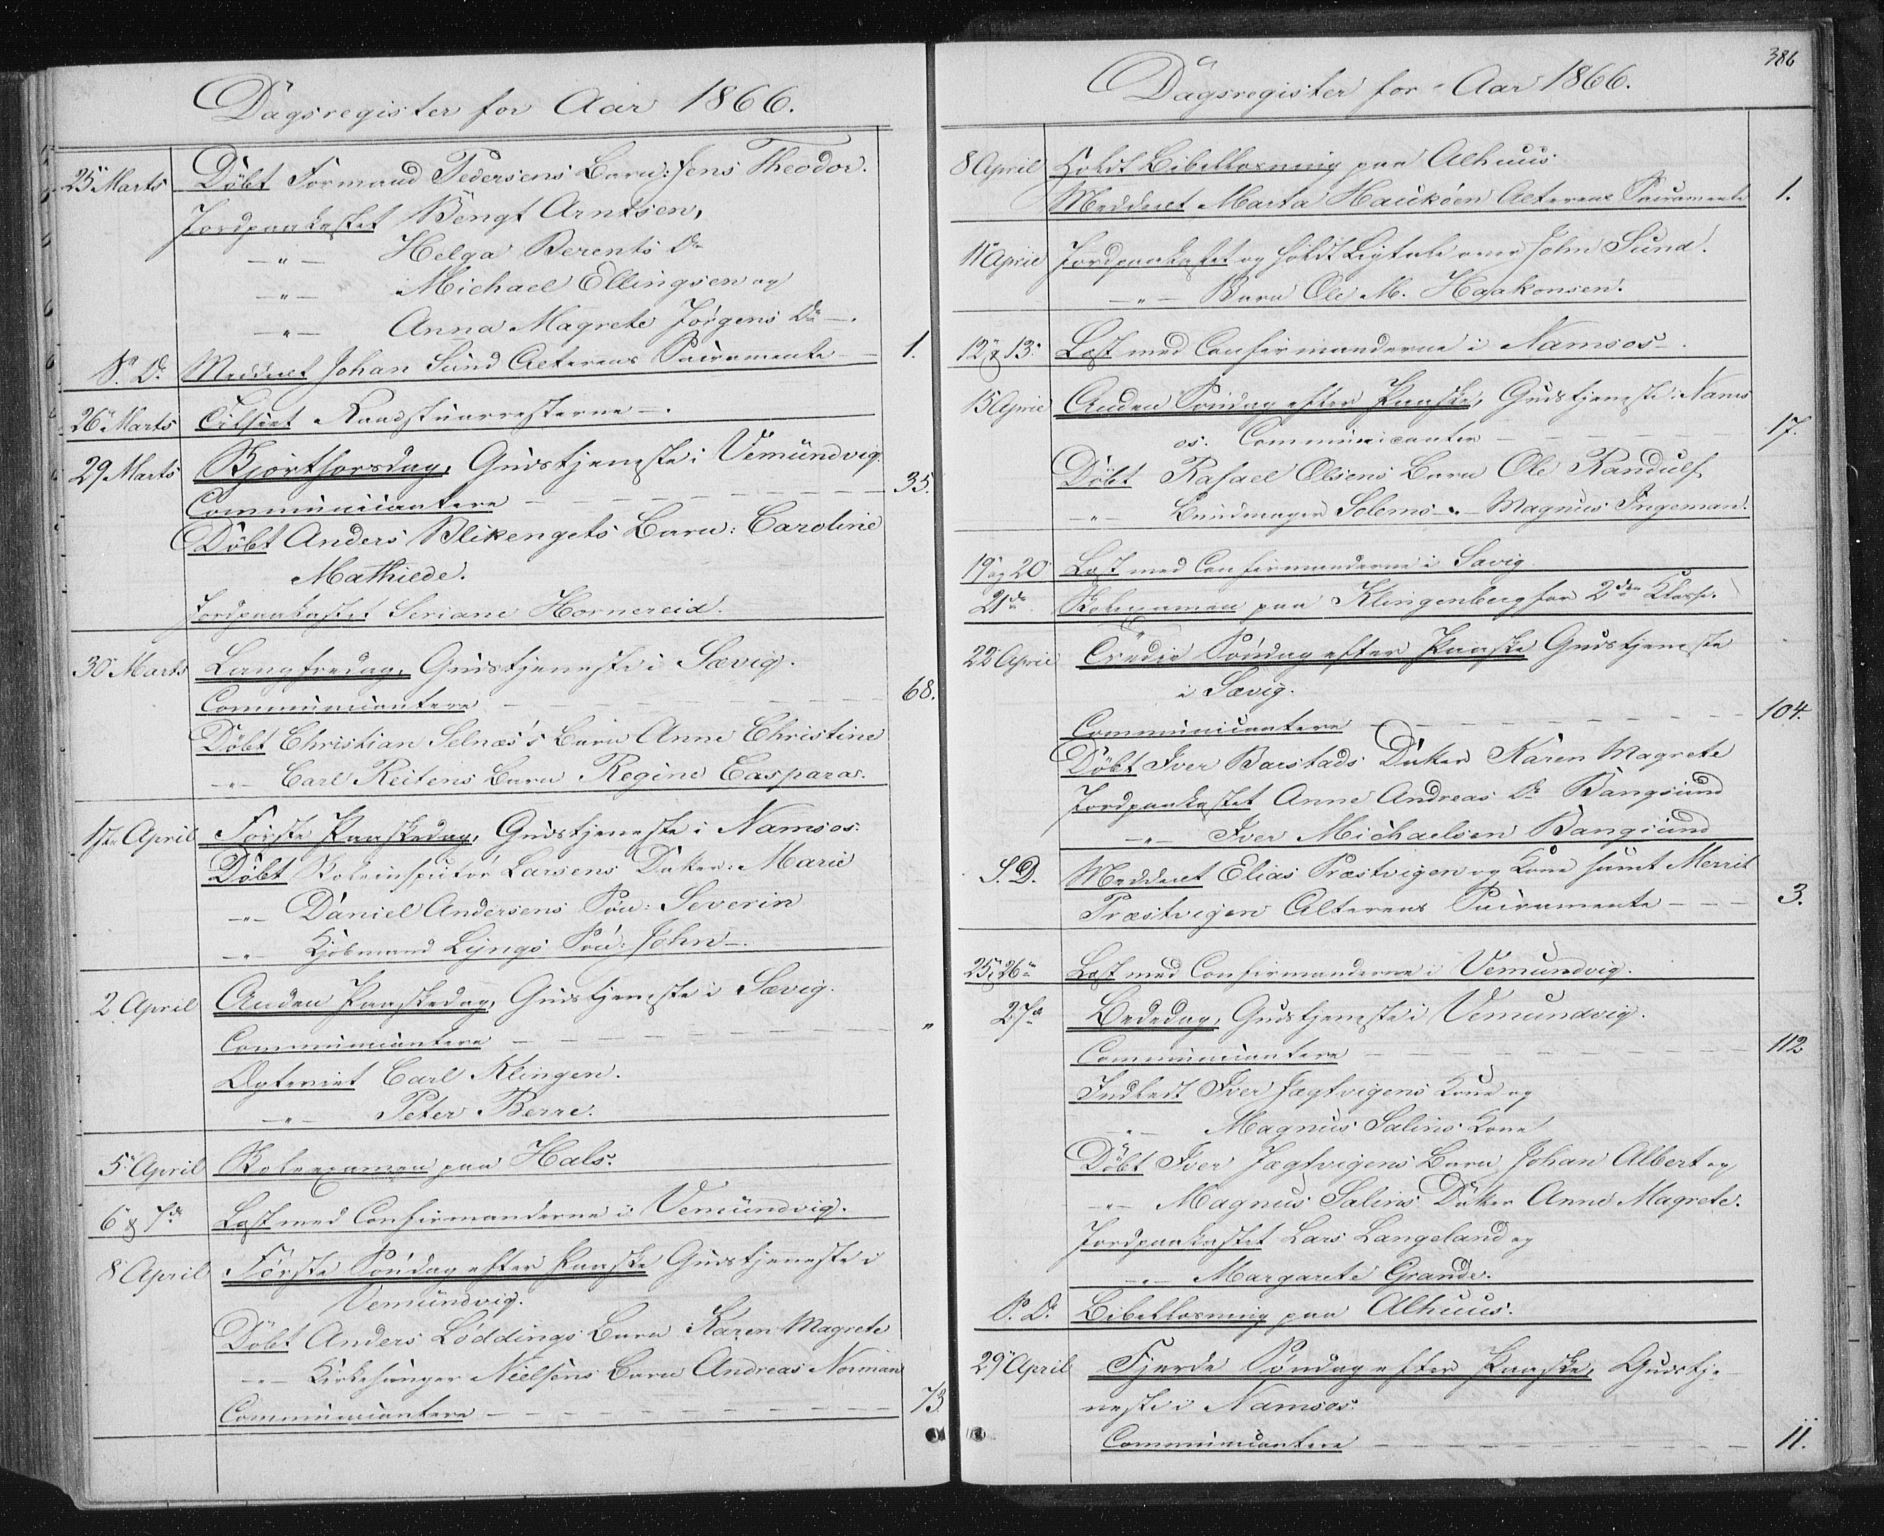 Dagsregister for Aar 1866.
25 Marts Döbt Formand Pedersens Barn: Jens Theodor.
Jordpaakastet Bengt Arntsen,
-"- Helga Berents Dr
-"- Michael Ellingsen og
-"- Anna Magrete Jörgens Dr -.
S. D. Meddeelt Johan Sund Alterens Sacramente - 1.
26 Marts Tilseet Raadstuarresterne -.
29 Marts Skjærthorsdag, Gudstjeneste i Vemundvig.
Communicantere - - - - 35.
Döbt Anders Blikengets Barn: Caroline
Mathilde.
Jordpaakastet Seriane Hornereid.
30 Marts Langfredag, Gudstjeneste i Sævig.
Communicantere - - - - 68.
Döbt Christian Selnæs's Barn Anne Christine
-"- Carl Reitens Barn Regine Caspara.
1ste April Første Paaskedag, Gudstjeneste i Namsos.
Döbt Toldinspectör Larsens Datter: Marie
-"- Daniel Andersens Sön: Severin
-"- Kjöbmand Lyngs Sön: John -.
2 April Anden Paaskedag, Gudstjeneste i Sævig.
Communicantere - - - - "
Ægteviet Carl Klingen.
-"- Peter Berre.
5 April Skoleexamen paa Hals.
6 & 7de Læst med Confirmanderne i Vemundvig.
8 April Förste Söndag efter Paaske Gudstjeneste i
Vemundvig.
Döbt Anders Löddings Barn Karen Magrete
-"- Kirkesanger Nielsens Barn Andreas Norman
Communicantere - - - - 73.
386
Dagsregister for Aar 1866.
8 April Holdt Bibellæsning paa Alhuus.
Meddeelt Marta Hauköen Alterens Sacramente 1.
11 April Jordpaakastet og holdt Ligtale over John Sund.
-"- Barn Ole M. Haakonsen.
12 & 13 Læst med Confirmanderne i Namsos -.
15 April Anden Söndag efter Paaske, Gudstjeneste i Nams
os. Communicanter - - - - 17.
Döbt Rafael Olsens Barn Ole Randulf
-"- Bundtmager Solems -"- Magnus Ingeman.
19 og 20 Læst med Confirmanderne i Sævig.
21de Skoleexamen paa Klingenberg for 2den Klasse.
22 April Tredie Söndag efter Paaske Gudstjeneste
i Sævig.
Communicantere - - - - 104.
Döbt Iver Barstads Datter Karen Magrete
Jordpaakastet Anne Andreas Dr Bangsund
-"- Iver Michaelsen Bangsund
S. D. Meddeelt Elias Præstvigen og Kone samt Merrit
Præstvigen Alterens Sacramente - - - 3.
25 & 26 Læst med Confirmanderne i Vemundvig.
27de Bededag, Gudstjeneste i Vemundvig.
Communicantere - - - - 112
Indledt Iver Jægtvigens Kone og
-"- Magnus Salins Kone
Döbt Iver Jægtvigens Barn Johan Albert og
-"- Magnus Salins Datter Anne Magrete.
Jordpaakastet Lars Langeland og
-"- Margarete Grande.
S. D. Bibellæsning paa Alhuus.
29 April Fjerde Söndag efter Paaske, Gudstje-
neste i Namsos.
Communicantere - - - - 11.